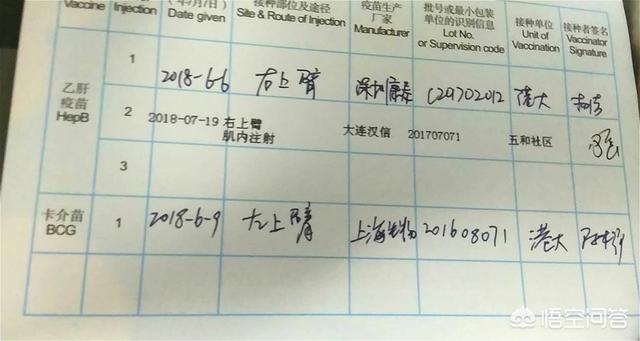 Vaccine
Injection
(年/月/日)
Date given
接种部位及途径
Site & Route of Injection
疫苗生产
厂家
Manufacturer
批号或最小包装
单位的识别信息
Lot No.
or Supervision code
接种单位
Unit of
Vaccination
接种者签名
Vaccinator
Signature
乙肝
疫苗
HepB
1
2018-6-6
右上臂
深圳康泰
C201702012
港大
2
2018-07-19
右上臂
肌内注射
大连汉信
201707071
五和社区
3
卡介苗
BCG
1
2018-6-9
左上臂
上海生物
201608071
港大
悟空问答